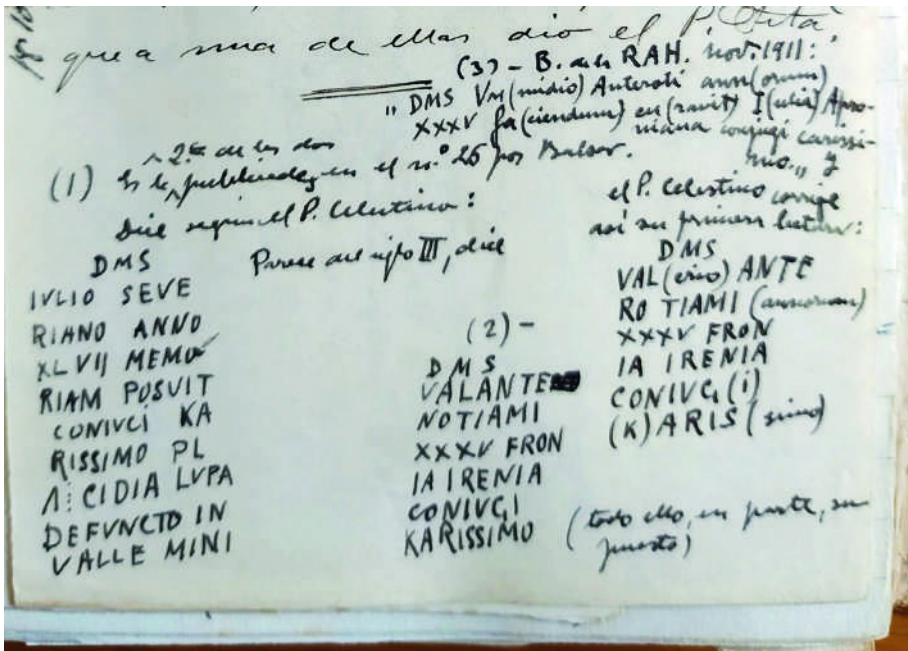 que a una de ellas dio el P. Fita.
(3) - B. de la RAH. nov. 1911:
"DMS Vm(midio) Anteroti ann(orum)
XXXV fa(ciendum) cu(ravit) I(ulia) Apro-
niana conjugi carissi-
mo.,, y
el P. Celestino corrige
así su primera lectura:
DMS
VAL(erio) ANTE
RO TIAMI (annorum)
XXXV FRON
IA IRENIA
CONIVG(i)
(K)ARIS(simo)
(1) Es la 2ª de las dos publicadas en el nº 26 por Balsar.
Dice según el P. Celestino:
Parece del siglo III, dice
DMS
IVLIO SEVE
RIANO ANNO
XLVII MEMO
RIAM POSVIT
CONIVCI KA
RISSIMO PL
Λ:CIDIA LVPA
DEFVNCTO IN
VALLE MINI
(2) -
DMS
VALANTE
NOTIAMI
XXXV FRON
IA IRENIA
CONIVGI
KARISSIMO
(todo ello, en parte, su
puesto)